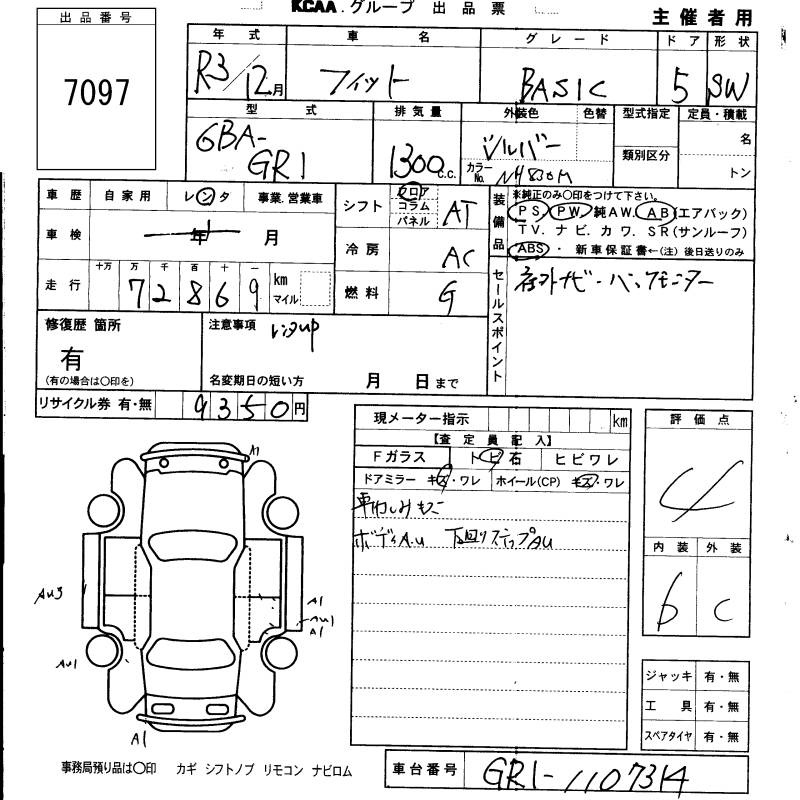 KCAA.グループ 出品票
主催者用
出品番号
7097
年式 車名 グレード ドア 形状
R3/12月 フィット BASIC 5 SW
型式 排気量 外装色 色替 型式指定 定員・積載
6BA-
GR1 1300c.c. シルバー 類別区分 名
カラーNo. NH830M トン
車歴 自家用 レンタ 事業.営業車
車検 年 月
走行 十万 万 千 百 十 一
7 2 8 6 9 km マイル
シフト フロア コラム パネル AT
冷房 AC
燃料 G
装備品 ※純正のみ○印をつけて下さい。
PS. PW. 純AW. AB(エアバック)
TV. ナビ. カワ. SR(サンルーフ)
ABS ・ 新車保証書←(注) 後日送りのみ
セールスポイント
社外ナビ・バックモニター
修復歴 箇所
有
(有の場合は○印を)
注意事項 レンタup
名変期日の短い方 月 日まで
リサイクル券 有・無 9350円
現メーター指示 km
【査定員記入】
Fガラス トビ石 ヒビワレ
ドアミラー キズ・ワレ ホイール(CP) キズ・ワレ
ボディA.U 下回りステップAU
評価点
4
内装 外装
b c
A1
AU3
A1
AU1
A1
AU1
A1
ジャッキ 有・無
工具 有・無
スペアタイヤ 有・無
事務局預り品は○印 カギ シフトノブ リモコン ナビロム
車台番号 GR1-1107314